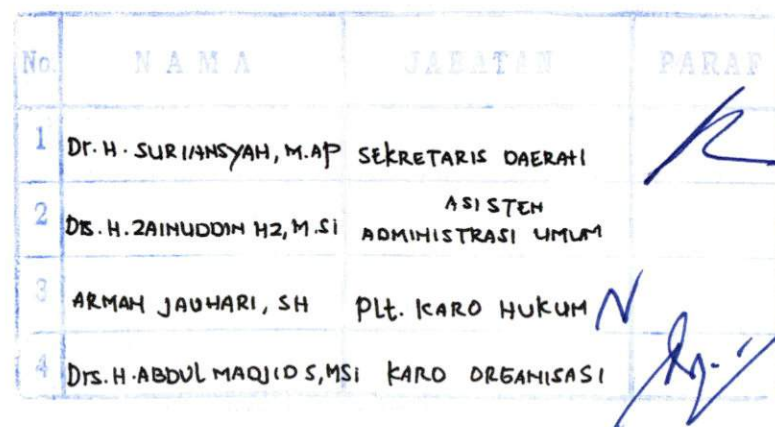 No. NAMA JABATAN PARAF
1 Dr. H. SURIANSYAH, M.AP SEKRETARIS DAERAH
2 Drs. H. ZAINUDDIN HZ, M.Si ASISTEN
ADMINISTRASI UMUM
3 ARMAN JAUHARI, SH Plt. KARO HUKUM
4 Drs. H. ABDUL MADJID S, MSi KARO ORGANISASI